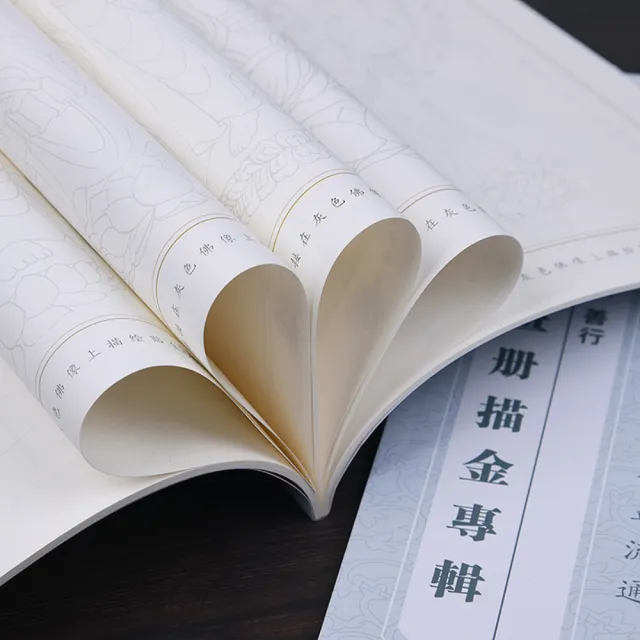 佛像上描绘
在灰色佛像上
接在灰色佛
在灰色
灰色佛像上描
善行
册描金專輯
流通